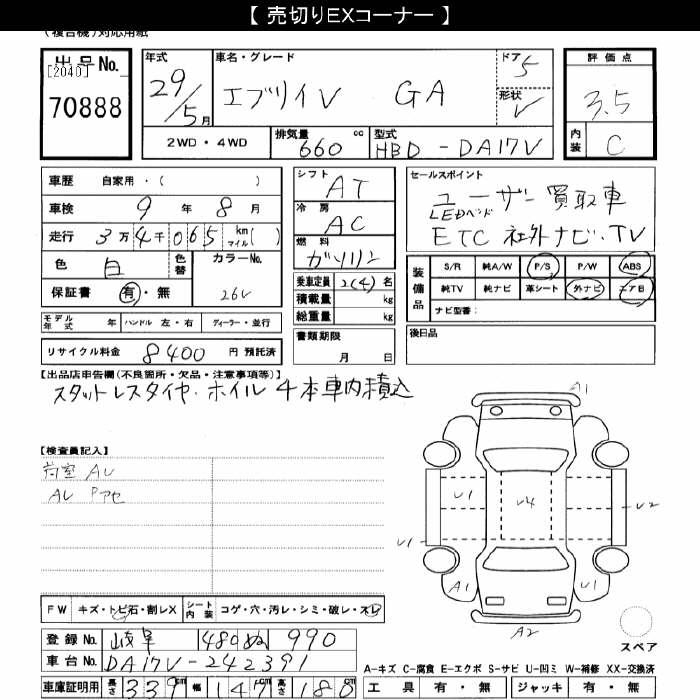 【 売切りEXコーナー 】
(複合機)対応用紙
出品No.
[2040]
70888
年式 29/5月
車名・グレード エブリイV GA
ドア 5
形状 V
評価点 3.5
内装 C
2WD・4WD
排気量 660 cc
型式 HBD-DA17V
車歴 自家用・( )
車検 9年 8月
走行 3万4千065 km マイル( )
色 白 色替 カラーNo. 26V
保証書 有・無
シフト AT
冷房 AC
燃料 ガソリン
乗車定員 2(4)名
積載量 kg
総重量 kg
書類期限
月 日
セールスポイント
ユーザー買取車
LEDヘッド
ETC 社外ナビ・TV
装備品
S/R 純A/W P/S P/W ABS
純TV 純ナビ 革シート 外ナビ エアB
ナビ型番:
後日品
モデル年式 年 ハンドル 左・右 ディーラー・並行
リサイクル料金 8400 円 預託済
【出品店申告欄(不良箇所・欠品・注意事項等)】
スタットレスタイヤ・ホイル 4本車内積込
【検査員記入】
荷室 AU
AU Pアセ
A1
U1 U4 U2
U1
A1 U1
A2
スペア
FW キズ・トビ石・割レX シート内装 コゲ・穴・汚レ・シミ・破レ・スレ
登録No. 岐阜 480 ぬ 990
車台No. DA17V-242391
車庫証明用 長さ 339cm 幅 147cm 高さ 180cm
A-キズ C-腐食 E-エクボ S-サビ U-凹ミ W-補修 XX-交換済
工具 有・無 ジャッキ 有・無